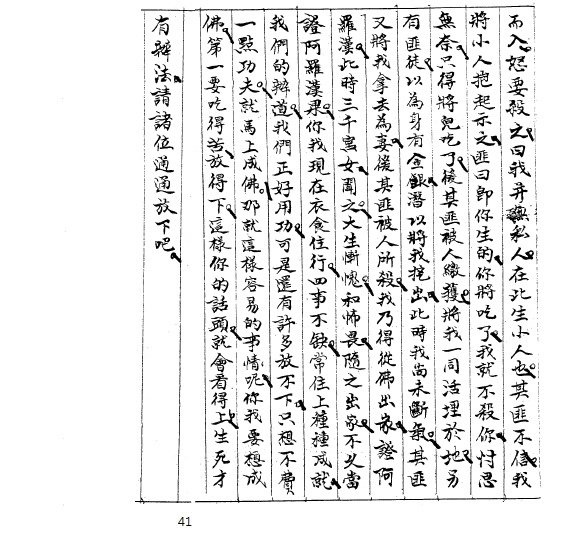 而入怒要殺之曰我并無私人在此生小人也其匪不信我
將小人抱起示之匪曰即你生的你將吃了我就不殺你忖思
無奈只得將兒吃了後其匪被人緝獲將我一同活埋於地另
有匪徒以為身有金銀潛以將我挖出此時我尚未斷氣其匪
又將我拿去為妻後其匪被人所殺我乃得從佛出家證阿
羅漢此時三千宮女聞之大生慚愧和怖畏隨之出家不久當
證阿羅漢果你我現在衣食住行四事不缺常住上種種成就
我們的辦道我們正好用功可是還有許多放不下只想不費
一點功夫就馬上成佛那就這樣容易的事情呢你我要想成
佛第一要吃得苦放得下這樣你的話頭就會看得上生死才
有辦法請諸位通通放下吧
41